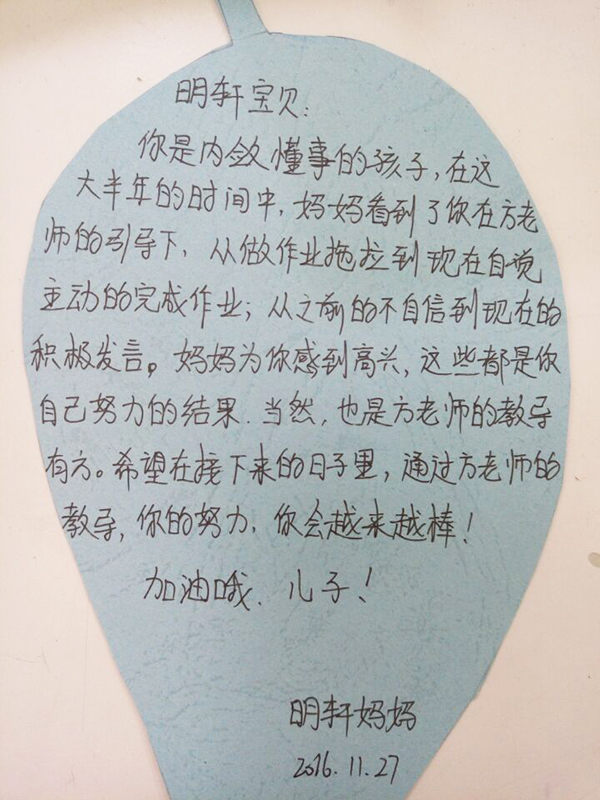 明轩宝贝:
你是内敛懂事的孩子,在这
大半年的时间中,妈妈看到了你在方老
师的引导下,从做作业拖拉到现在自觉
主动的完成作业;从之前的不自信到现在的
积极发言。妈妈为你感到高兴,这些都是你
自己努力的结果.当然,也是方老师的教导
有方。希望在接下来的日子里,通过方老师的
教导,你的努力,你会越来越棒!
加油哦、儿子!
明轩妈妈
2016.11.27